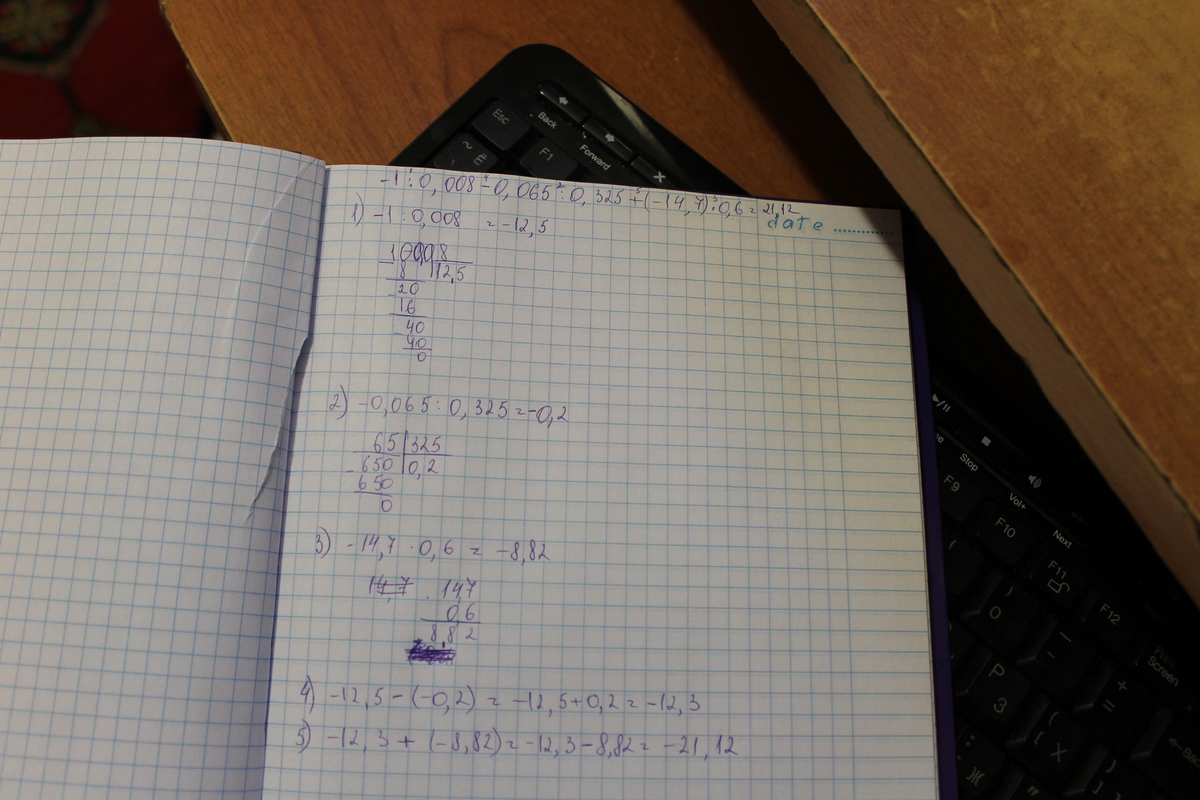 -1 : 0,008 - 0,065 : 0,325 + (-14,7) · 0,6 = 21,12
date
1) -1 : 0,008 = -12,5
10008
8 12,5
-20
16
40
40
0
2) -0,065 : 0,325 = -0,2
65 325
-650 0,2
650
0
3) -14,7 · 0,6 = -8,82
14,7 14,7
0,6
8,82
4) -12,5 - (-0,2) = -12,5 + 0,2 = -12,3
5) -12,3 + (-8,82) = -12,3 - 8,82 = -21,12
Esc
Back
Forward
~ Ё
F1
Stop
F9
Vol+
F10
Next
F11
F12
Screen
)
0
P
3
+
=
[ Х
Ж